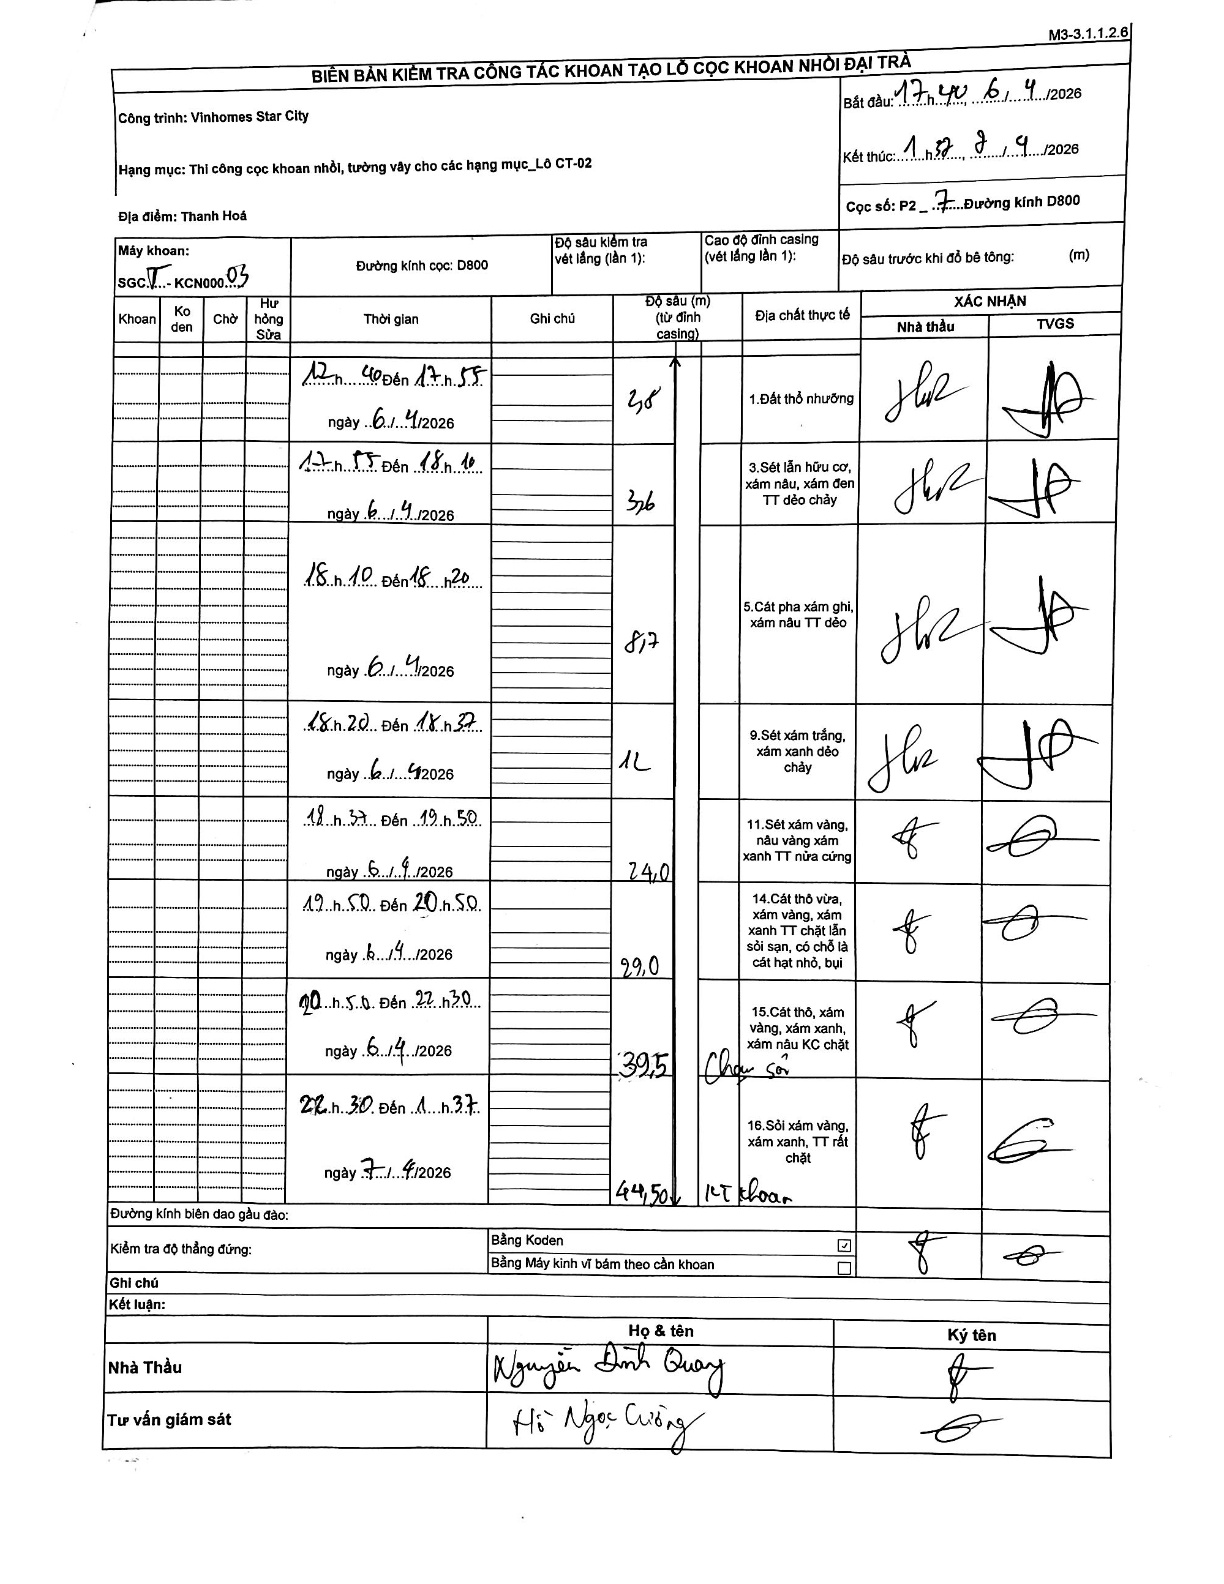 M3-3.1.1.2.6
BIÊN BẢN KIỂM TRA CÔNG TÁC KHOAN TẠO LỖ CỌC KHOAN NHỒI ĐẠI TRÀ
Công trình: Vinhomes Star City
Hạng mục: Thi công cọc khoan nhồi, tường vây cho các hạng mục_Lô CT-02
Địa điểm: Thanh Hoá
Bắt đầu: 17 h 40, 6/4/2026
Kết thúc: 1 h 37, 7/4/2026
Cọc số: P2_7 Đường kính D800
Máy khoan:
SGC V - KCN000 03
Đường kính cọc: D800
Độ sâu kiểm tra
vét lắng (lần 1):
Cao độ đỉnh casing
(vét lắng lần 1):
Độ sâu trước khi đổ bê tông: (m)
Khoan
Ko
den
Chờ
Hư
hỏng
Sửa
Thời gian
Ghi chú
Độ sâu (m)
(từ đỉnh
casing)
Địa chất thực tế
XÁC NHẬN
Nhà thầu
TVGS
17 h 40 Đến 17 h 55
ngày 6/4/2026
2,8
1.Đất thổ nhưỡng
17 h 55 Đến 18 h 10
ngày 6/4/2026
3,6
3.Sét lẫn hữu cơ,
xám nâu, xám đen
TT dẻo chảy
18 h 10 Đến 18 h 20
ngày 6/4/2026
8,7
5.Cát pha xám ghi,
xám nâu TT dẻo
18 h 20 Đến 18 h 37
ngày 6/4/2026
12
9.Sét xám trắng,
xám xanh dẻo
chảy
18 h 37 Đến 19 h 50
ngày 6/4/2026
24,0
11.Sét xám vàng,
nâu vàng xám
xanh TT nửa cứng
19 h 50 Đến 20 h 50
ngày 6/4/2026
29,0
14.Cát thô vừa,
xám vàng, xám
xanh TT chặt lẫn
sỏi sạn, có chỗ là
cát hạt nhỏ, bụi
20 h 50 Đến 22 h 30
ngày 6/4/2026
39,5
15.Cát thô, xám
vàng, xám xanh,
xám nâu KC chặt
Chạm sỏi
22 h 30 Đến 1 h 37
ngày 7/4/2026
44,50
16.Sỏi xám vàng,
xám xanh, TT rất
chặt
KT khoan
Đường kính biên dao gầu đào:
Kiểm tra độ thẳng đứng:
Bằng Koden
Bằng Máy kinh vĩ bám theo cần khoan
Ghi chú
Kết luận:
Họ & tên
Ký tên
Nhà Thầu
Nguyễn Đình Quang
Tư vấn giám sát
Hồ Ngọc Cường